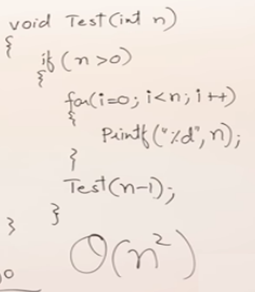 void Test(int n)
{
if (n>0)
{
for(i=0; i<n; i++)
{
Printf("%d", n);
}
Test(n-1);
}
}
O(n²)